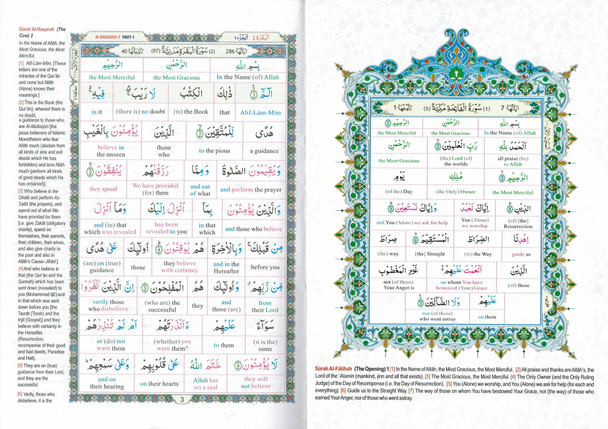 1 رُكُوعُهَا (1) سُورَةُ الْفَاتِحَةِ مَكِّيَّةٌ (5) اٰيَاتُهَا 7
بِسْمِ اللّٰهِ الرَّحْمٰنِ الرَّحِيْمِ
the Most Merciful the Most Gracious In the Name (of) Allah
اَلْحَمْدُ لِلّٰهِ رَبِّ الْعٰلَمِيْنَ الرَّحْمٰنِ
the Most Gracious (the) Lord (of) the worlds all praise (be) to Allah
الرَّحِيْمِ مٰلِكِ يَوْمِ
(of the) Day (the Only) Owner the Most Merciful
الدِّيْنِ اِيَّاكَ نَعْبُدُ وَاِيَّاكَ نَسْتَعِيْنُ
and You (Alone) we ask for help You (Alone) we worship (of) [the] Resurrection
اِهْدِنَا الصِّرَاطَ الْمُسْتَقِيْمَ صِرَاطَ
(the) way [the] Straight (to) the Way guide us
الَّذِيْنَ اَنْعَمْتَ عَلَيْهِمْ غَيْرِ الْمَغْضُوْبِ
not (of those) Your Anger is on whom You have bestowed (Your) Grace (of) those
عَلَيْهِمْ وَلَا الضَّآلِّيْنَ
nor (of those) who went astray on them
Sūrah Al-Fātihah (The Opening) 1 [1] In the Name of Allāh, the Most Gracious, the Most Merciful. [2] All praise and thanks are Allāh's, the
Lord of the 'Alamīn (mankind, jinn and all that exists). [3] The Most Gracious, the Most Merciful. [4] The Only Owner (and the Only Ruling
Judge) of the Day of Recompense (i.e. the Day of Resurrection). [5] You (Alone) we worship, and You (Alone) we ask for help (for each and
everything). [6] Guide us to the Straight Way. [7] The way of those on whom You have bestowed Your Grace, not (the way) of those who
earned Your Anger, nor of those who went astray.
AL-BAQARAH 2 PART-1
40 رُكُوعَاتُهَا (2) سُورَةُ الْبَقَرَةِ مَدَنِيَّةٌ (87) اٰيَاتُهَا 286
بِسْمِ اللّٰهِ الرَّحْمٰنِ الرَّحِيْمِ
the Most Merciful the Most Gracious In the Name (of) Allah
الٓمّٓ ذٰلِكَ الْكِتٰبُ لَا رَيْبَ فِيْهِ
in it (there is) no doubt (is) the Book that Alif-Lam-Mim
هُدًى لِّلْمُتَّقِيْنَ الَّذِيْنَ يُؤْمِنُوْنَ بِالْغَيْبِ
believe in the unseen those who to the pious a guidance
وَيُقِيْمُوْنَ الصَّلٰوةَ وَمِمَّا رَزَقْنٰهُمْ يُنْفِقُوْنَ
they spend We have provided (for) them and out of what and perform the prayer
وَالَّذِيْنَ يُؤْمِنُوْنَ بِمَآ اُنْزِلَ اِلَيْكَ وَمَآ اُنْزِلَ
and (in) that which was revealed has been revealed to you in that which and those who believe
مِنْ قَبْلِكَ وَبِالْاٰخِرَةِ هُمْ يُوْقِنُوْنَ اُولٰٓئِكَ عَلٰى هُدًى
(are) on (true) guidance those they believe with certainty and in the Hereafter before you
مِّنْ رَّبِّهِمْ وَاُولٰٓئِكَ هُمُ الْمُفْلِحُوْنَ اِنَّ الَّذِيْنَ كَفَرُوْا
verily those who disbelieve (who are) the successful they and those (are) from their Lord
سَوَآءٌ عَلَيْهِمْ ءَاَنْذَرْتَهُمْ اَمْ لَمْ تُنْذِرْهُمْ
or (do) not warn them (whether) you warn them? to them (it is) the same
لَا يُؤْمِنُوْنَ خَتَمَ اللّٰهُ عَلٰى قُلُوْبِهِمْ وَعَلٰى سَمْعِهِمْ
and on their hearing on their hearts Allah has set a seal they will not believe
3
Sūrah Al-Baqarah (The
Cow) 2
In the Name of Allāh, the
Most Gracious, the Most
Merciful.
[1] Alif-Lām-Mīm. [These
letters are one of the
miracles of the Qur'ān
and none but Allāh
(Alone) knows their
meanings.]
[2] This is the Book (the
Qur'ān), whereof there is
no doubt,
a guidance to those who
are Al-Muttaqūn [the
pious believers of Islamic
Monotheism who fear
Allāh much (abstain from
all kinds of sins and evil
deeds which He has
forbidden) and love Allāh
much (perform all kinds
of good deeds which He
has ordained)].
[3] Who believe in the
Ghaib and perform As-
Salāt (the prayers), and
spend out of what We
have provided for them
[i.e. give Zakāt (obligatory
charity), spend on
themselves, their parents,
their children, their wives,
and also give charity to
the poor and also in
Allāh's Cause-Jihād].
[4] And who believe in
that (the Qur'ān and the
Sunnah) which has been
sent down (revealed) to
you (Muhammad ﷺ) and
in that which was sent
down before you [the
Taurāt (Torah) and the
Injīl (Gospel)] and they
believe with certainty in
the Hereafter.
(Resurrection,
recompense of their good
and bad deeds, Paradise
and Hell).
[5] They are on (true)
guidance from their Lord,
and they are the
successful.
[6] Verily, those who
disbelieve, it is the